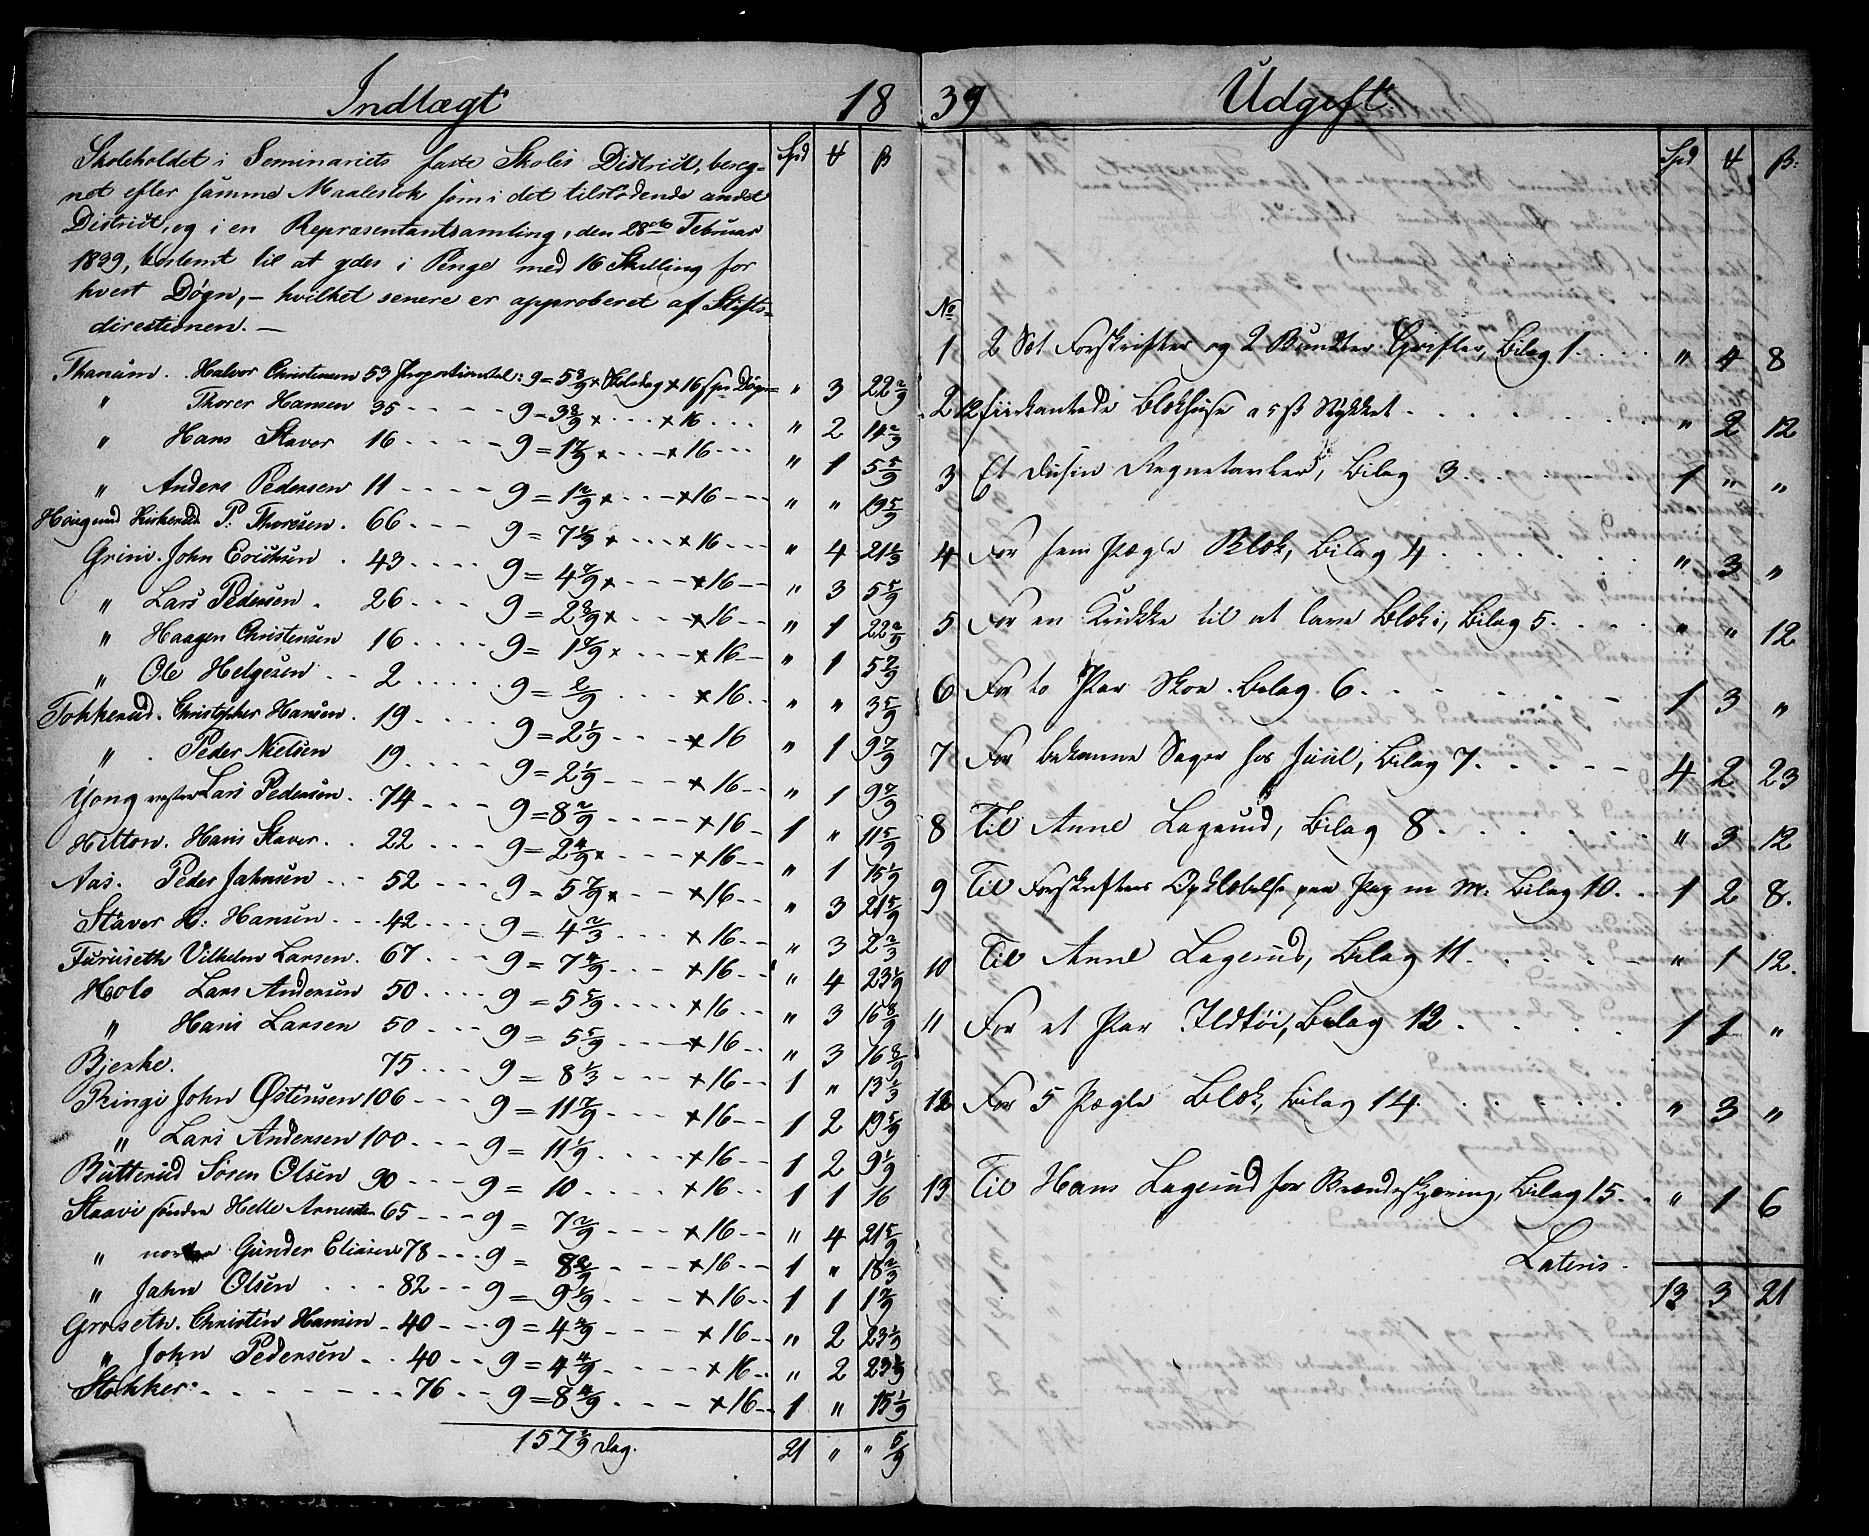 Indlægt 18
Skoleholdet i Seminariets faste Skoles District, bereg-
net efter samme Maalestok som i det tilstødende andet
District, og i en Repræsentantsamling, den 28de Februar
1839, bestemt til at ydes i Penge med 16 Skilling for
hvert Døgn, – hvilket senere er approberet af Stifts-
directionen. –
Spd ß
Thanüm. Halvor Christensen 53 Proportional: 9 = 5 8/9 × Skoledag × 16 ß pr Døgn = " 3 22 2/9
" Thorer Hansen 35 - - - - 9 = 3 8/9 × - - - × 16 - - - " 2 14 2/9
" Hans Staver 16 - - - - 9 = 1 7/9 × - - - × 16 - - - " 1 5 5/9
" Anders Pedersen 11 - - - - 9 = 1 2/9 × - - - × 16 - - - " " 19 5/9
Høigund Kirkerud P. Thoresen. 66 - - - 9 = 7 1/3 × - - - × 16 - - - " 4 21 1/3
Grini. John Erichsen . 43 - - - - 9 = 4 7/9 × - - - × 16 - - " 3 5 5/9
" Lars Pedersen . 26 - - - - 9 = 2 8/9 × - - - × 16 - - " 1 22 2/9
" Haagen Christensen 16 - - - - 9 = 1 7/9 × - - - × 16 - " 1 5 7/9
" Ole Helgesen - - 2 - - - - 9 = 2/9 - - - - × 16 - - " " 3 5/9
Tokkerud. Christopher Hansen. 19 - - - - 9 = 2 1/9 - - - - × 16 " 1 9 7/9
" . Peder Nielsen 19 - - - - 9 = 2 1/9 - - - - × 16 - - " 1 9 7/9
Yong vestre Lars Pedersen. . 74 - - - 9 = 8 2/9 - - - - × 16 - 1 " 11 5/9
Hilton. Hans Staver. . 22 - - - - 9 = 2 4/9 × - - - × 16 - - " 1 15 1/9
Aas. Peder Jahnsen - - 52 - - - - 9 = 5 7/9 × - - - × 16 - - " 3 21 5/9
Staver H: Hansen - - - 42 - - - 9 = 4 2/3 - - - - × 16 - - " 3 2 2/3
Furuseth Vilhelm Larsen. 67 - - - 9 = 7 4/9 - - - - × 16 - - " 4 23 1/9
Holo Lars Andersen 50 - - - - 9 = 5 5/9 - - - - × 16 - - " 3 16 8/9
" Hans Larsen 50 - - - 9 = 5 5/9 - - - - × 16 - - " 3 16 8/9
Bjerke. 75 - - - 9 = 8 1/3 - - - - × 16 - - 1 " 13 1/3
Ringi John Østensen 106 - - - 9 = 11 7/9 - - - - × 16 - - 1 2 19 5/9
" Lars Andersen 100 - - - 9 = 11 1/9 - - - - × 16 - - 1 2 9 1/9
Butterud Søren Olsen 90 - - - 9 = 10 - - - - × 16 - - 1 1 16
Staavi søndre Helle Arnesdtr 65 - - - 9 = 7 2/9 - - - - × 16 - - " 4 21 5/9
" nordre Gunder Eliasen 78 - - - 9 = 8 2/3 - - - - × 16 - - 1 " 18 2/3
" Jahn Olsen - - - - 82 - - - 9 = 9 1/9 - - - - × 16 - - 1 1 1 7/9
Groseth. Christen Hansen - 40 - - - 9 = 4 4/9 - - - - × 16 - - " 2 23 1/9
" John Pedersen - - 40 - - 9 = 4 4/9 - - - - × 16 - - " 2 23 1/9
Stokker. - - - - - - - 76 - - 9 = 8 4/9 - - - - × 16 - - 1 " 15 1/9
157 2/9 Dag. 21 " " 5/9
39 Udgift.
Spd ß:
No
1 2 Sæt Forskrifter og 2 Bundter Grifler, Bilag 1. . . . " 4 8
2 12 fiirkantede Blækhuse a 5 ß Stykket . . . . . . " 2 12
3 Et Dusin Regnetavler, Bilag 3 . . . . 1 " "
4 For fem Pægle Blæk, Bilag 4 . . . . . . " 3 "
5 For en Krukke til at lave Blæk i, Bilag 5. . . . " " 12
6 For to Par Skoe. Bilag 6. . . . . . 1 3 "
7 For bekomne Sager hos Juul, Bilag 7. . . . . 4 2 23
8 Til Anne Lagerud, Bilag 8 . . . . . . " 3 12
9 Til Forskrifters Opklæbelse paa Pap m. M. Bilag 10. . . 1 2 8.
10 Til Anne Lagerud, Bilag 11 . . . . . " 1 12.
11 For et Par Ildtøi, Bilag 12 . . . . . 1 1 "
12 For 5 Pægle Blæk, Bilag 14. . . . . . " 3 "
13 Til Hans Lagerud for Brændeskjæring, Bilag 15. . " 1 6
Lateris. 13 3 21